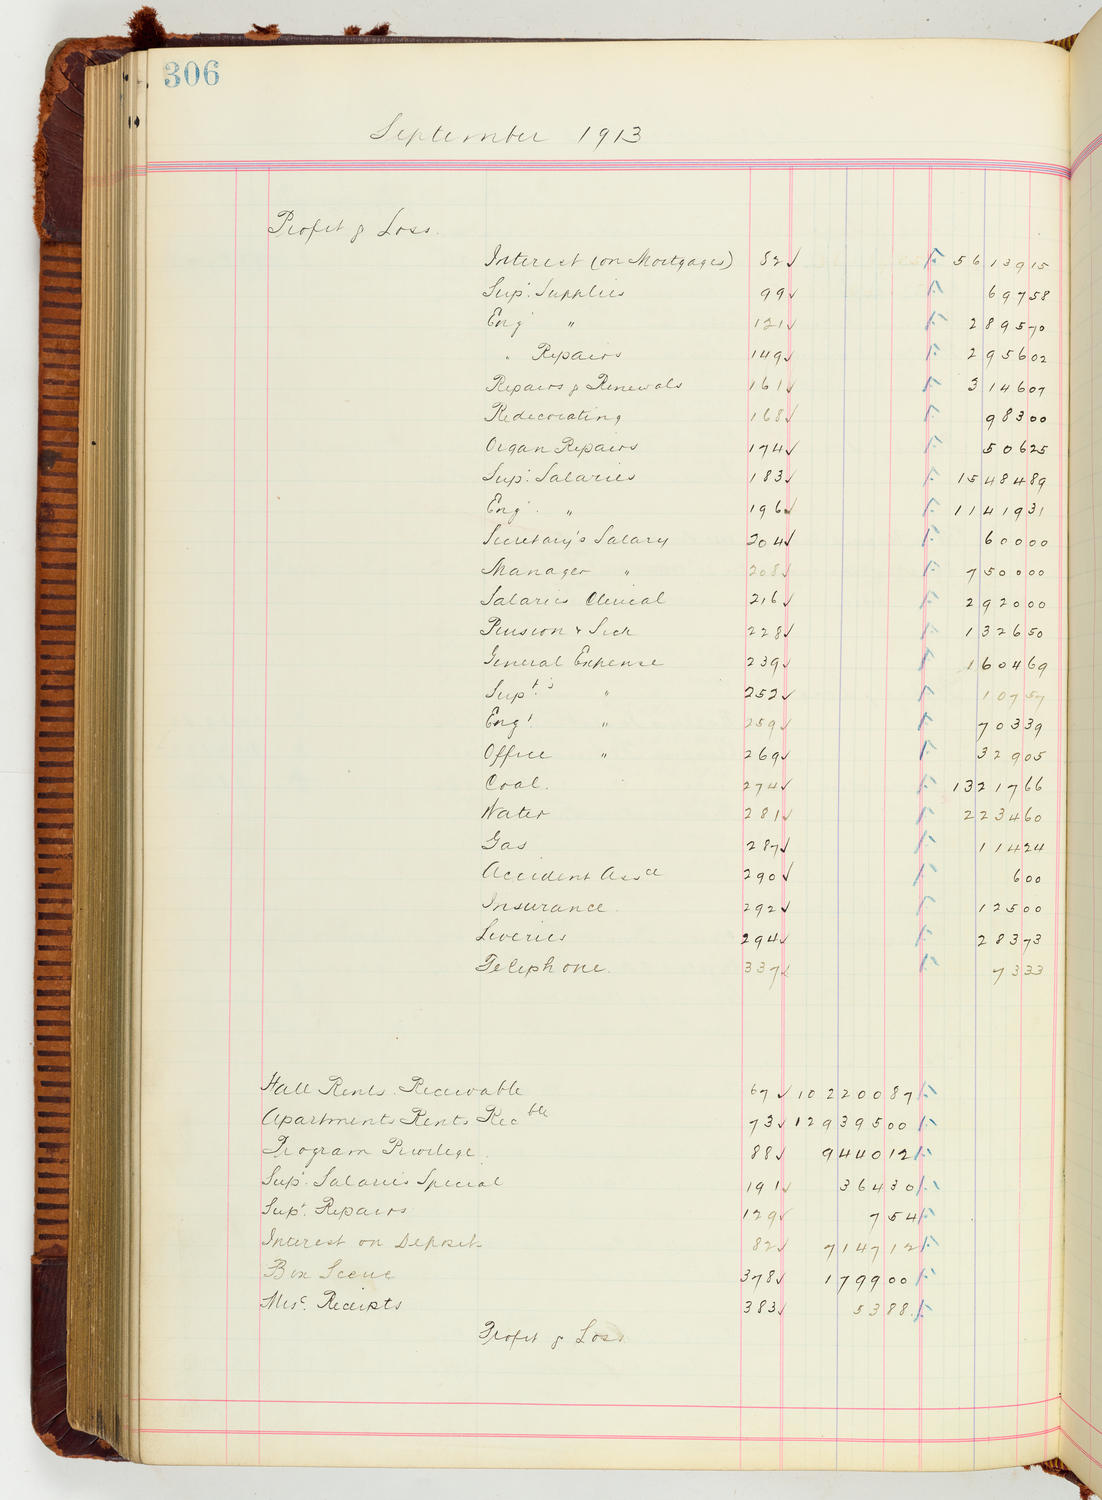 306
September 1913
Profit & Loss.
Interest (on Mortgages) 82 ✓ 5613915
Sup.t Supplies 99 ✓ 69758
Eng.r " 121 ✓ 289570
" Repairs 149 ✓ 295602
Repairs & Renewals 161 ✓ 314607
Redecorating 168 ✓ 98300
Organ Repairs 174 ✓ 50625
Sup.t Salaries 183 ✓ 1548489
Eng.r " 196 ✓ 1141931
Secretary's Salary 204 ✓ 60000
Manager " 208 ✓ 750000
Salaries Clerical 216 ✓ 292000
Pension & Sick 228 ✓ 132650
General Expense 239 ✓ 160469
Supt.'s " 252 ✓ 10757
Eng.r " 259 ✓ 70339
Office " 269 ✓ 32905
Coal. 274 ✓ 1321766
Water 281 ✓ 223460
Gas 287 ✓ 11424
Accident Assce 290 ✓ 600
Insurance. 292 ✓ 12500
Liveries 294 ✓ 28373
Telephone. 337 ✓ 7333
Hall Rents. Receivable 67 ✓ 10220087
Apartments Rents Recble 73 ✓ 12939500
Program Privilege. 88 ✓ 944012
Sup.t Salaries Special 191 ✓ 36430
Supt. Repairs 129 ✓ 754
Interest on Deposit 82 ✓ 714712
Box Scene 378 ✓ 179900
Misc. Receipts 383 ✓ 5388
Profit & Loss